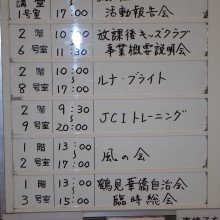 講堂 1号室 17:00 活動報告会
2階 6号室 10:00 〜 11:30 放課後キッズクラブ 事業概要説明会
2階 8号室 10:00 〜 17:00 ルナ・ブライト
2階 9号室 9:30 〜 20:00 JCIトレーニング
1階 2号室 13:00 〜 17:00 風の会
1階 3号室 13:00 〜 15:00 鶴見華僑自治会 臨時総会